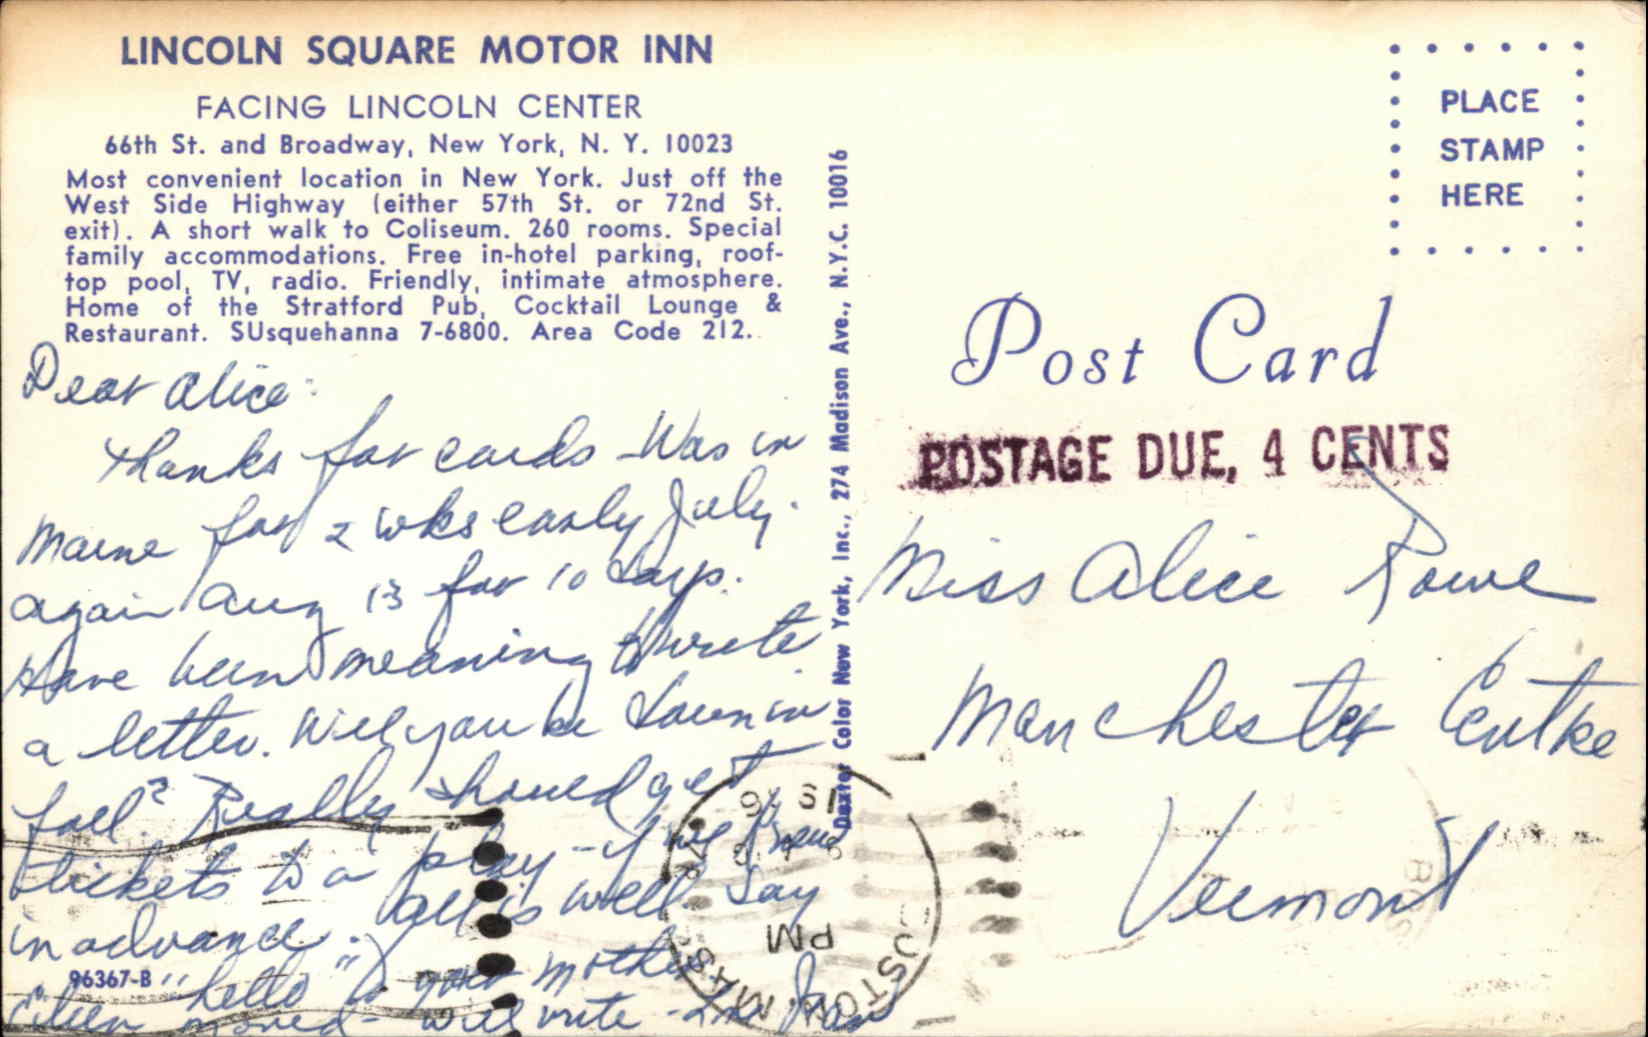 LINCOLN SQUARE MOTOR INN
FACING LINCOLN CENTER
66th St. and Broadway, New York, N. Y. 10023
Most convenient location in New York. Just off the
West Side Highway (either 57th St. or 72nd St.
exit). A short walk to Coliseum. 260 rooms. Special
family accommodations. Free in-hotel parking, roof-
top pool, TV, radio. Friendly, intimate atmosphere.
Home of the Stratford Pub, Cocktail Lounge &
Restaurant. SUsquehanna 7-6800. Area Code 212.
Dear Alice:
Thanks for cards - Was in
Maine for 2 wks early July.
again Aug 13 for 10 days.
Have been meaning to write
a letter. Will you be down in
fall? Really should get
tickets to a play - if we know
in advance. All is well. Say
"hello" to your mother
moved - will write -
96367-B
Dexter Color New York, Inc., 274 Madison Ave., N.Y.C. 10016
PLACE
STAMP
HERE
Post Card
POSTAGE DUE, 4 CENTS
Miss Alice Rowe
Manchester Centre
Vermont
PM